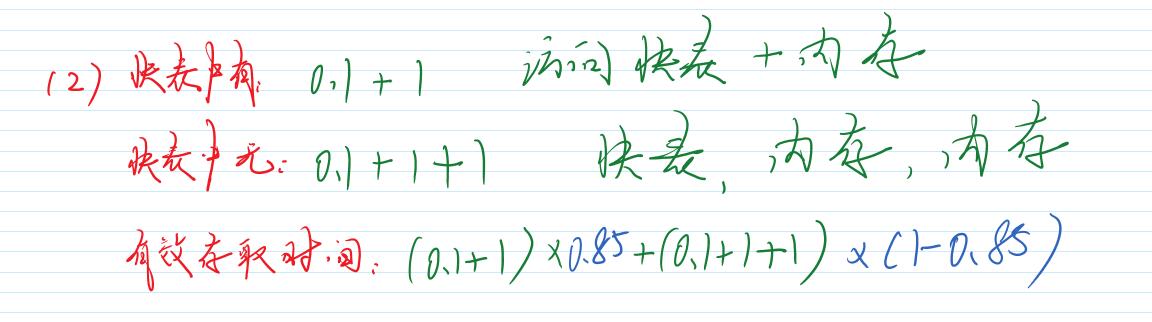 (2) 快表中有: 0.1+1 访问快表+内存
快表中无: 0.1+1+1 快表,内存,内存
有效存取时间: (0.1+1)×0.85+(0.1+1+1)×(1-0.85)